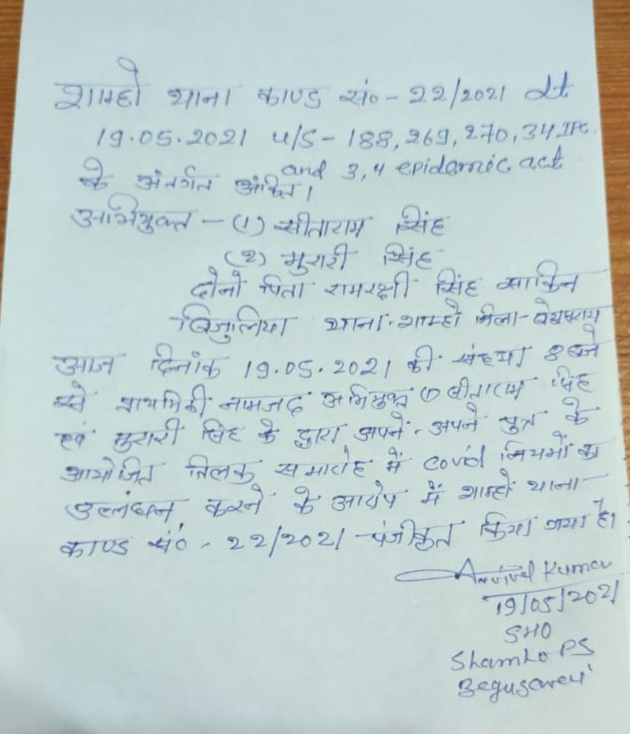 शाम्हो थाना काण्ड सं०-22/2021 dt
19.05.2021 u/s-188,269,270,34 IPC.
and 3,4 epidemic act
के अंतर्गत अंकित।
अभियुक्त - (1) सीताराम सिंह
(2) मुरारी सिंह
दोनो पिता रामरक्षी सिंह साकिन
बिजुलिया थाना-शाम्हो जिला-बेगूसराय
आज दिनांक 19.05.2021 की संध्या 8 बजे
से प्राथमिकी नामजद अभियुक्त (1) सीताराम सिंह
एवं मुरारी सिंह के द्वारा अपने-अपने पुत्र के
आयोजित तिलक समारोह में covid नियमों का
उल्लंघन करने के आरोप में शाम्हो थाना-
काण्ड सं०-22/2021 पंजीकृत किया गया है।
Kumar
19/05/2021
SHO
Shamho PS
Begusarai